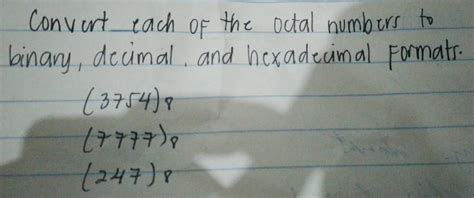 Convert each of the octal numbers to
binary, decimal, and hexadecimal formats.
(3754)₈
(7777)₈
(247)₈